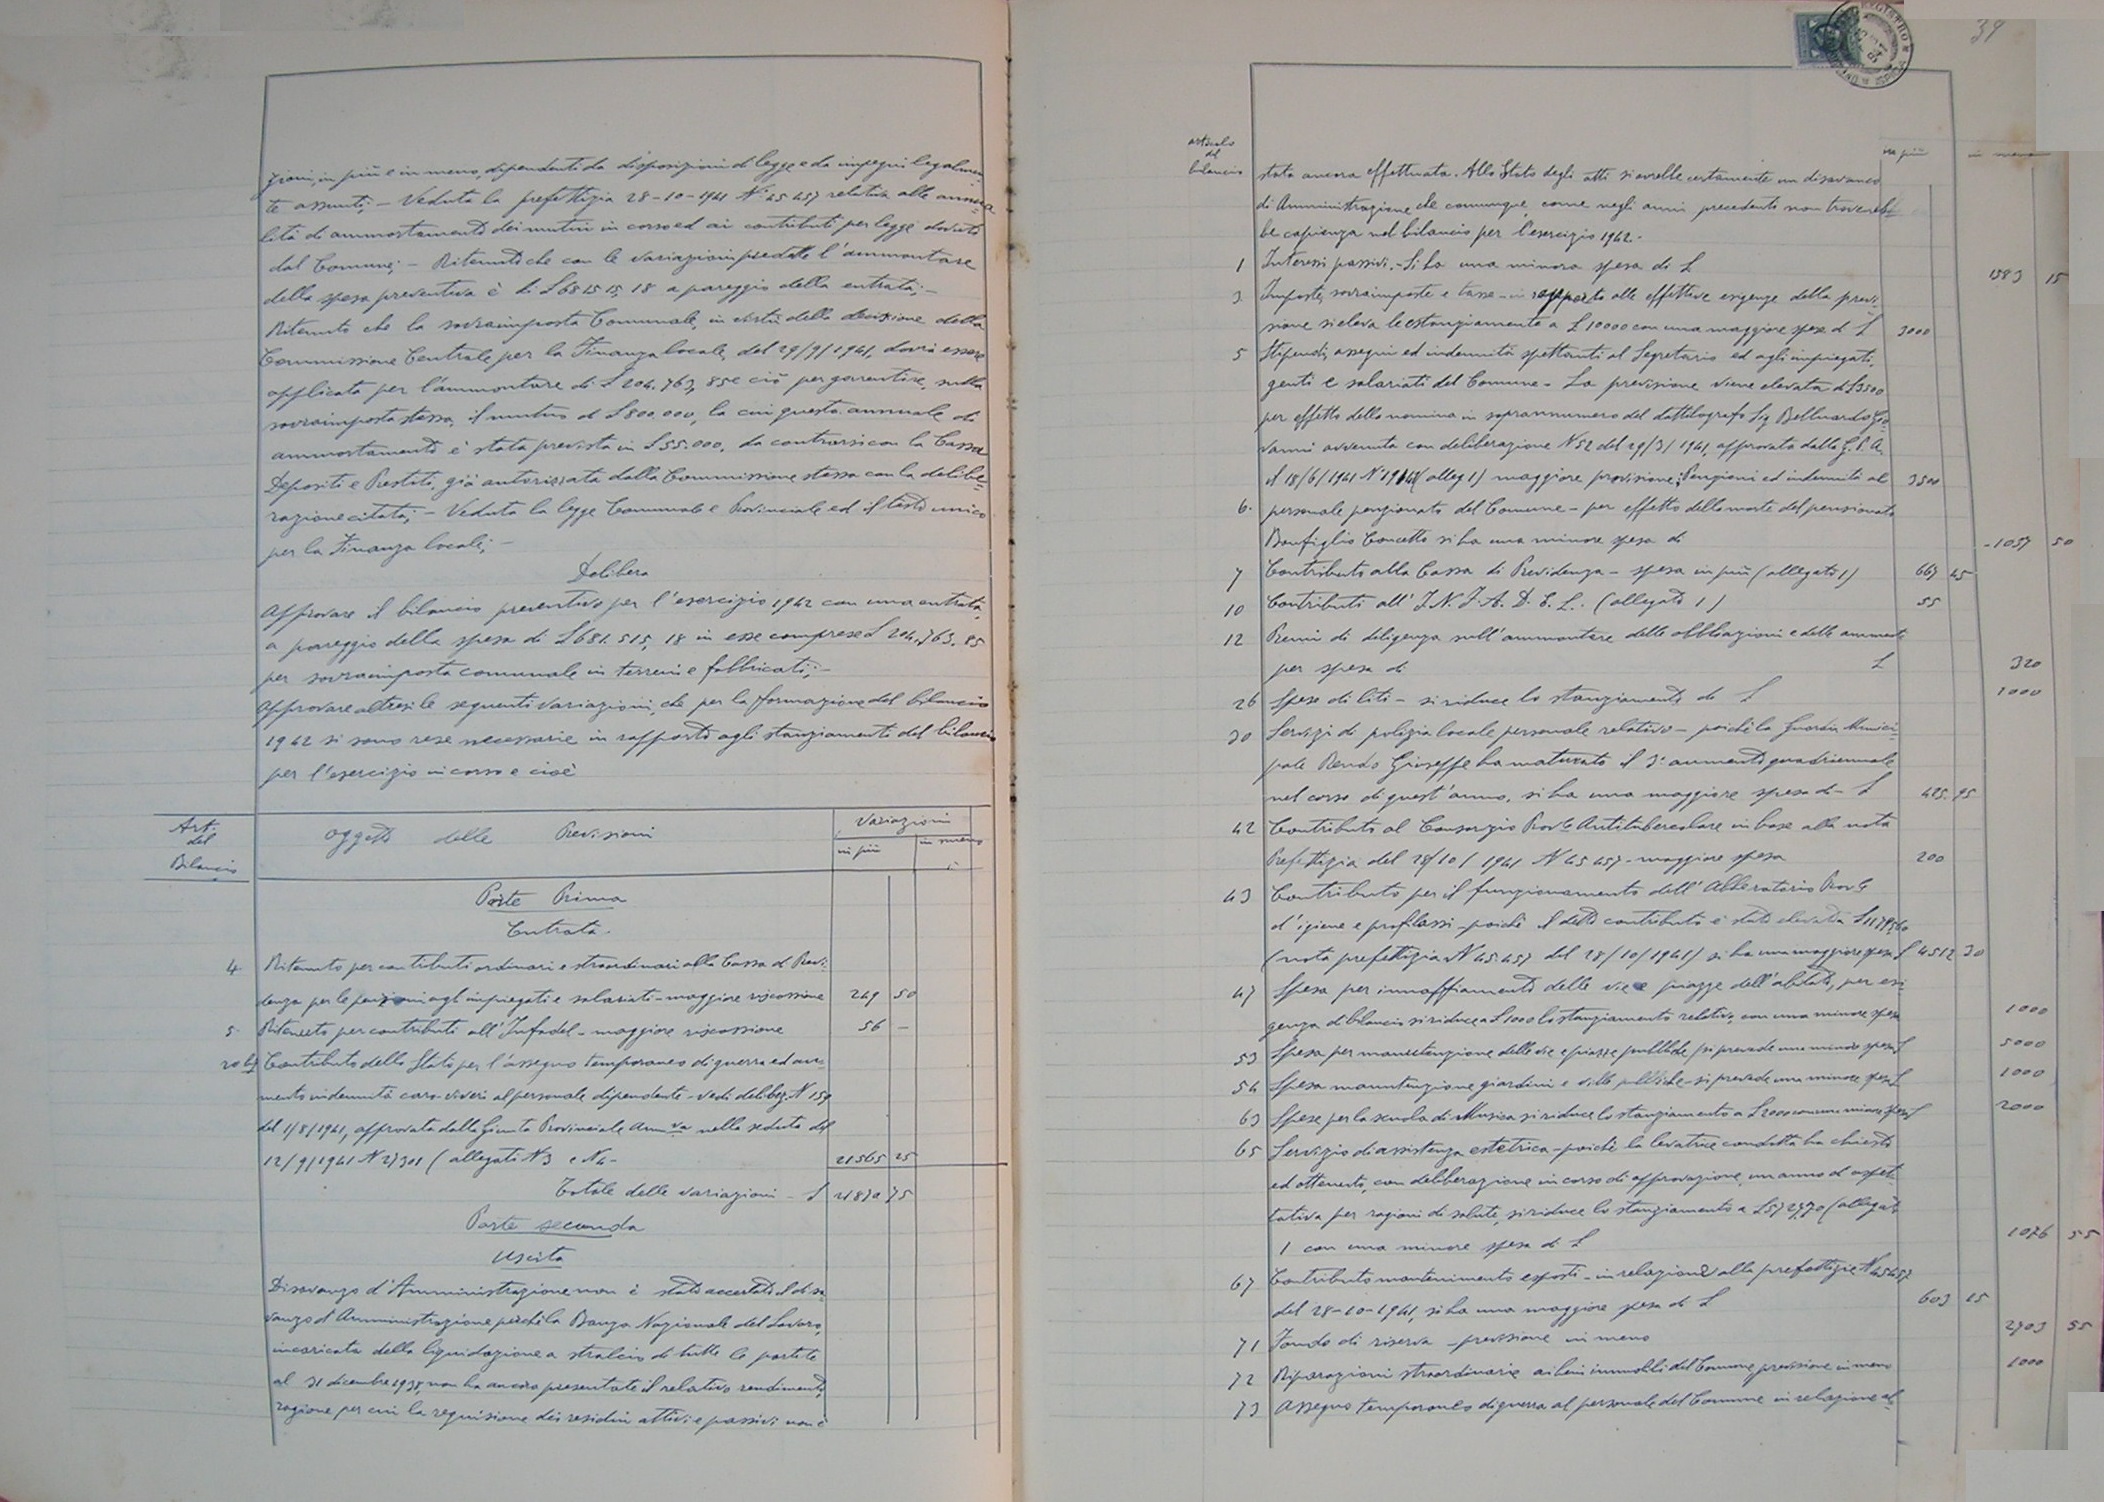 zioni, in più e in meno, dipendenti da disposizioni di legge e da impegni legalmen=
te assunti; - Veduta la prefettizia 28-10-1941 N° 45457 relativa alle annua=
lità di ammortamento dei mutui in corso ed ai contributi per legge dovuti
dal Comune; - Ritenuto che con le variazioni predette l'ammontare
della spesa preventiva è di £ 681515,18 a pareggio della entrata; -
Ritenuto che la sovraimposta Comunale, in virtù della decisione della
Commissione Centrale per la Finanza locale, del 29/9/1941, dovrà essere
applicata per l'ammontare di £ 204.763,85 e ciò per garentire, sulla
sovraimposta stessa, il mutuo di £ 800.000, la cui quota annuale di
ammortamento è stata prevista in £ 55.000, da contrarsi con la Cassa
Depositi e Prestiti, già autorizzata dalla Commissione stessa con la delibe=
razione citata; - Veduta la legge Comunale e Provinciale ed il testo unico
per la Finanza locale; -
Delibera
Approvare il bilancio preventivo per l'esercizio 1942 con una entrata,
a pareggio della spesa di £ 681.515,18 in esse comprese £ 204.763.85
per sovraimposta comunale in terreni e fabbricati; -
Approvare altresì le seguenti variazioni, che per la formazione del bilancio
1942 si sono rese necessarie in rapporto agli stanziamenti del bilancio
per l'esercizio in corso e cioè
Art. del Bilancio
oggetto delle Previsioni
Variazioni
in più in meno
Parte Prima
Entrata.
4 Ritenuto per contributi ordinari e straordinari alla Cassa di Previ=
denza per le pensioni agli impiegati e salariati - maggiore riscossione 249 50
5 Ritenuto per contributi all'Infadel - maggiore riscossione 56 -
20 bis Contributo dello Stato per l'assegno temporaneo di guerra ed au=
mento indennità caro-viveri al personale dipendente - vedi deliber. N 159
del 1/8/1941, approvata dalla Giunta Provinciale Amm.va nella seduta del
12/9/1941 N 27301 (allegati N 3 e N 4 - 21565 25
Totale delle variazioni - £ 21870 75
Parte seconda
Uscita
Disavanzo d'Amministrazione non è stato accertato il disa=
vanzo d'Amministrazione perchè la Banca Nazionale del Lavoro,
incaricata della liquidazione a stralcio di tutte le partite
al 31 dicembre 1938, non ha ancora presentato il relativo rendimento,
ragione per cui la requisione dei residui attivi e passivi non è
39
articolo del bilancio
in più in meno
stata ancora effettuata. Allo Stato degli atti si avrebbe certamente un disavanzo
di Amministrazione che comunque, come negli anni precedenti non troverebb
be capienza nel bilancio per l'esercizio 1942.
1 Interessi passivi. - Si ha una minora spesa di £ 1583 15
3 Imposte, sovraimposte e tasse - in rapporto alle effettive esigenze della previ=
sione si eleva lo stanziamento a £ 10000 con una maggiore spesa di £ 3000
5 Stipendi, assegni ed indennità spettanti al Segretario ed agli impiegati,
genti e salariati del Comune - La previsione viene elevata di £ 3500
per effetto della nomina in soprannumero del dattilografo Sig. Belluardo Gio=
vanni avvenuta con deliberazione N 52 del 29/3/1941, approvata dalla G.P.A.
il 18/6/1941 (alleg 1) maggiore previsione; Pensioni ed indennità al 3500
6. personale pensionato del Comune - per effetto della morte del pensionato
Bonfiglio Concetto si ha una minore spesa di - 1057 50
7 Contributo alla Cassa di Previdenza - spesa in più (allegato 1) 667 45
10 Contributi all'I.N.F.A.D.E.L. (allegato 1) 55
12 Premi di diligenza sull'ammontare delle obbligazioni e delle ammende
per spesa di £ 320
26 Spese di liti - si riduce lo stanziamento di £ 1000
30 Servizi di polizia locale personale relativo - poichè la Guardia Munici=
pale Rendo Giuseppe ha maturato il 3° aumento quadriennale
nel corso di quest'anno, si ha una maggiore spesa di - £ 425.95
42 Contributo al Consorzio Prov.le Antitubercolare in base alla nota
Prefettizia del 28/10/1941 N 45457 - maggiore spesa 200
43 Contributo per il funzionamento dell'Alberatorio Prov.le
d'igiene e profilassi - poichè il detto contributo è stato elevato £ 11795,60
(nota prefettizia N 45.457 del 28/10/1941) si ha una maggiore spesa £ 4512 30
47 Spesa per innaffiamento delle vie e piazze dell'abitato, per esi=
genza di bilancio si riduce a £ 1000 lo stanziamento relativo, con una minore spesa 1000
53 Spesa per manutenzione delle vie e piazze pubbliche / si prevede una minore spesa £ 5000
54 Spesa manutenzione giardini e ville pubbliche - si prevede una minore spesa £ 1000
63 Spese per la scuola di Musica si riduce lo stanziamento a £ 2000 con una minore spesa £ 2000
65 Servizio di assistenza ostetrica - poichè la levatrice condotta ha chiesto
ed ottenuto, con deliberazione in corso di approvazione, un anno d'aspet=
tativa per ragioni di salute, si riduce lo stanziamento a £ 5727,70 (allegato
1 con una minore spesa di £ 1076 55
67 Contributo mantenimento esposti - in relazione alla prefettizia N 45457
del 28-10-1941, si ha una maggiore spesa di £ 603 15
71 Fondo di riserva - previsione in meno 2703 55
72 Riparazioni straordinarie ai beni immobili del Comune previsione in meno 1000
73 Assegno temporaneo di guerra al personale del Comune in relazione al=